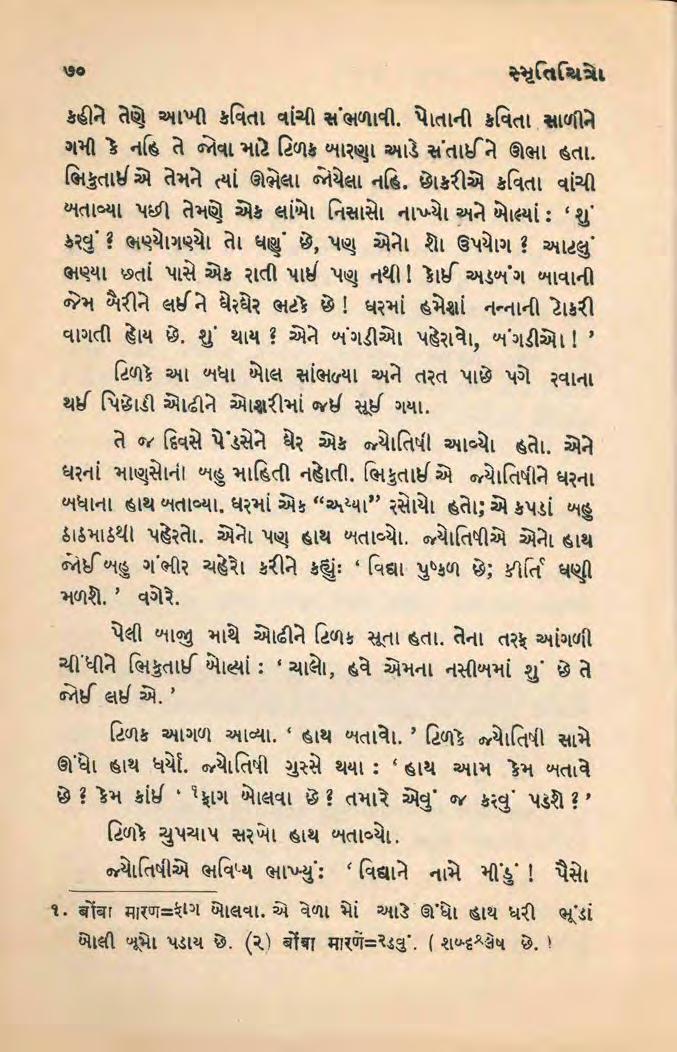 ૭૦ સ્મૃતિચિત્રો
કહીને તેણે આખી કવિતા વાંચી સંભળાવી. પોતાની કવિતા સાળીને
ગમી કે નહિ તે જોવા માટે ટિળક બારણા આડે સંતાઈને ઊભા હતા.
ભિકુતાઈએ તેમને ત્યાં ઊભેલા જોયેલા નહિ. છોકરીએ કવિતા વાંચી
બતાવ્યા પછી તેમણે એક લાંબો નિસાસો નાખ્યો અને બોલ્યાં : ‘ શું
કરવું ? ભણ્યોગણ્યો તો ઘણું છે, પણ એનો શો ઉપયોગ ? આટલું
ભણ્યા છતાં પાસે એક રાતી પાઈ પણ નથી ! કોઈ અડબંગ બાવાની
જેમ બૈરીને લઈને ઘેરઘેર ભટકે છે ! ઘરમાં હમેશાં નન્નાની ટોકરી
વાગતી હોય છે. શું થાય ? એને બંગડીઓ પહેરાવો, બંગડીઓ ! ’
ટિળકે આ બધા બોલ સાંભળ્યા અને તરત પાછે પગે રવાના
થઈ પિછોડી ઓઢીને ઓશરીમાં જઈ સૂઈ ગયા.
તે જ દિવસે પેંડસેને ઘેર એક જ્યોતિષી આવ્યો હતો. એને
ઘરનાં માણસોનાં બહુ માહિતી નહોતી. ભિકુતાઈએ જ્યોતિષીને ઘરના
બધાના હાથ બતાવ્યા. ઘરમાં એક “અય્યા” રસોયો હતો; એ કપડાં બહુ
ઠાઠમાઠથી પહેરતો. એનો પણ હાથ બતાવ્યો. જ્યોતિષીએ એનો હાથ
જોઈ બહુ ગંભીર ચહેરો કરીને કહ્યું: ‘ વિદ્યા પુષ્કળ છે; કીર્તિ ઘણી
મળશે. ’ વગેરે.
પેલી બાજુ માથે ઓઢીને ટિળક સૂતા હતા. તેના તરફ આંગળી
ચીંધીને ભિકુતાઈ બોલ્યાં : ‘ ચાલો, હવે એમના નસીબમાં શું છે તે
જોઈ લઈએ. ’
ટિળક આગળ આવ્યા. ‘ હાથ બતાવો. ’ ટિળકે જ્યોતિષી સામે
ઊંધો હાથ ધર્યો. જ્યોતિષી ગુસ્સે થયા : ‘ હાથ આમ કેમ બતાવે
છે ? કેમ કાંઈ ‘ ૧ફાગ બોલવા છે ? તમારે એવું જ કરવું પડશે ? ’
ટિળકે ચુપચાપ સરખો હાથ બતાવ્યો.
જ્યોતિષીએ ભવિષ્ય ભાખ્યું: ‘ વિદ્યાને નામે મીંડું ! પૈસો
૧. बोंबा मारण=ફાગ બોલવા. એ વેળા મોં આડે ઊંધો હાથ ધરી ભૂંડાં
બોલી બૂમો પડાય છે. (૨) बोंबा मारणें=રડવું. ( શબ્દશ્લેષ છે. )